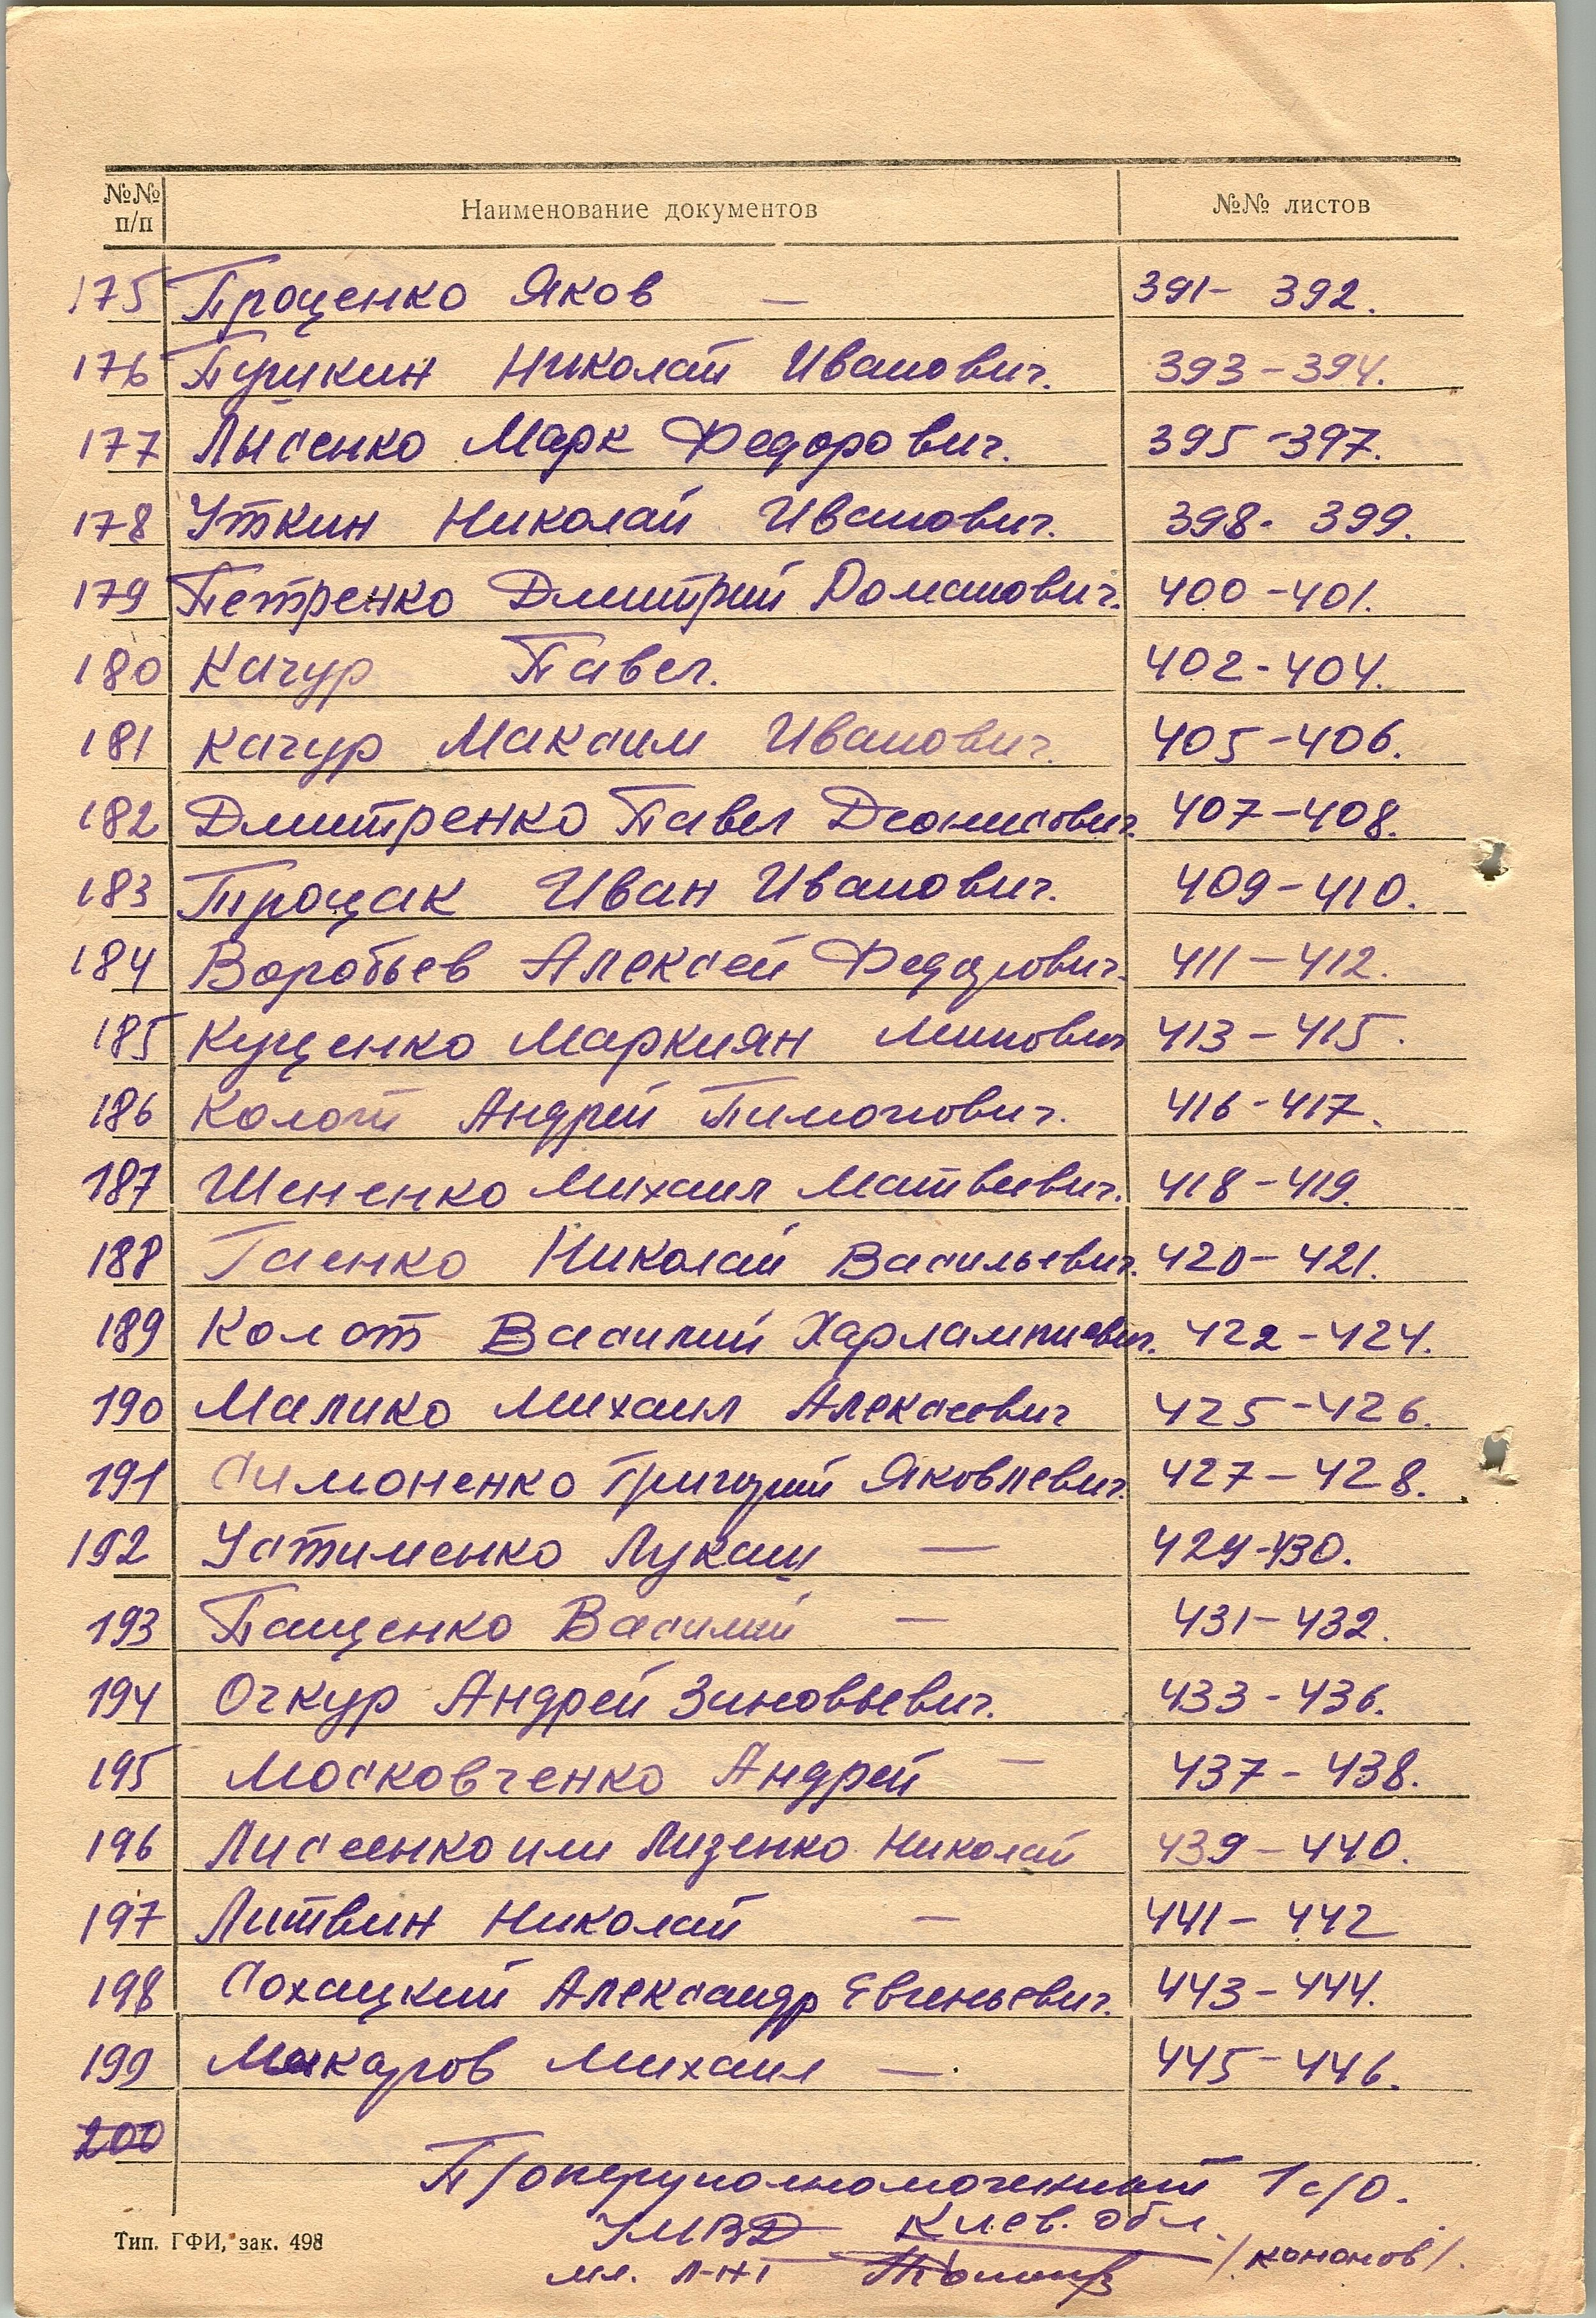 №№ п/п Наименование документов №№ листов
175 Проценко Яков — 391 - 392.
176 Пушкин Николай Иванович. 393 - 394.
177 Лысенко Марк Федорович. 395 - 397.
178 Уткин Николай Иванович. 398 - 399.
179 Петренко Дмитрий Романович. 400 - 401.
180 Качур Павел. 402 - 404.
181 Качур Максим Иванович. 405 - 406.
182 Дмитренко Павел Деонисович. 407 - 408.
183 Процак Иван Иванович. 409 - 410.
184 Воробьев Алексей Федорович. 411 - 412.
185 Куценко Маркиян 413 - 415.
186 Колот Андрей Тимонович. 416 - 417.
187 Шененко Михаил Матвеевич. 418 - 419.
188 Гаенко Николай Васильевич. 420 - 421.
189 Колот Василий Харлампиевич. 422 - 424.
190 Малико Михаил Алексеевич 425 - 426.
191 Симоненко Григорий Яковлевич. 427 - 428.
192 Устименко Лукаш — 429 - 430.
193 Пащенко Василий — 431 - 432.
194 Очкур Андрей Зиновьевич. 433 - 436.
195 Московченко Андрей — 437 - 438.
196 Лисеенко или Лизенко Николай 439 - 440.
197 Литвин Николай — 441 - 442
198 Сохацкий Александр Евгеньевич. 443 - 444.
199 Макаров Михаил —. 445 - 446.
200
П/оперуполномоченный 1 с/о.
УМВД Киев. обл.
мл. л-нт /Кононов/.
Тип. ГФИ, зак. 498